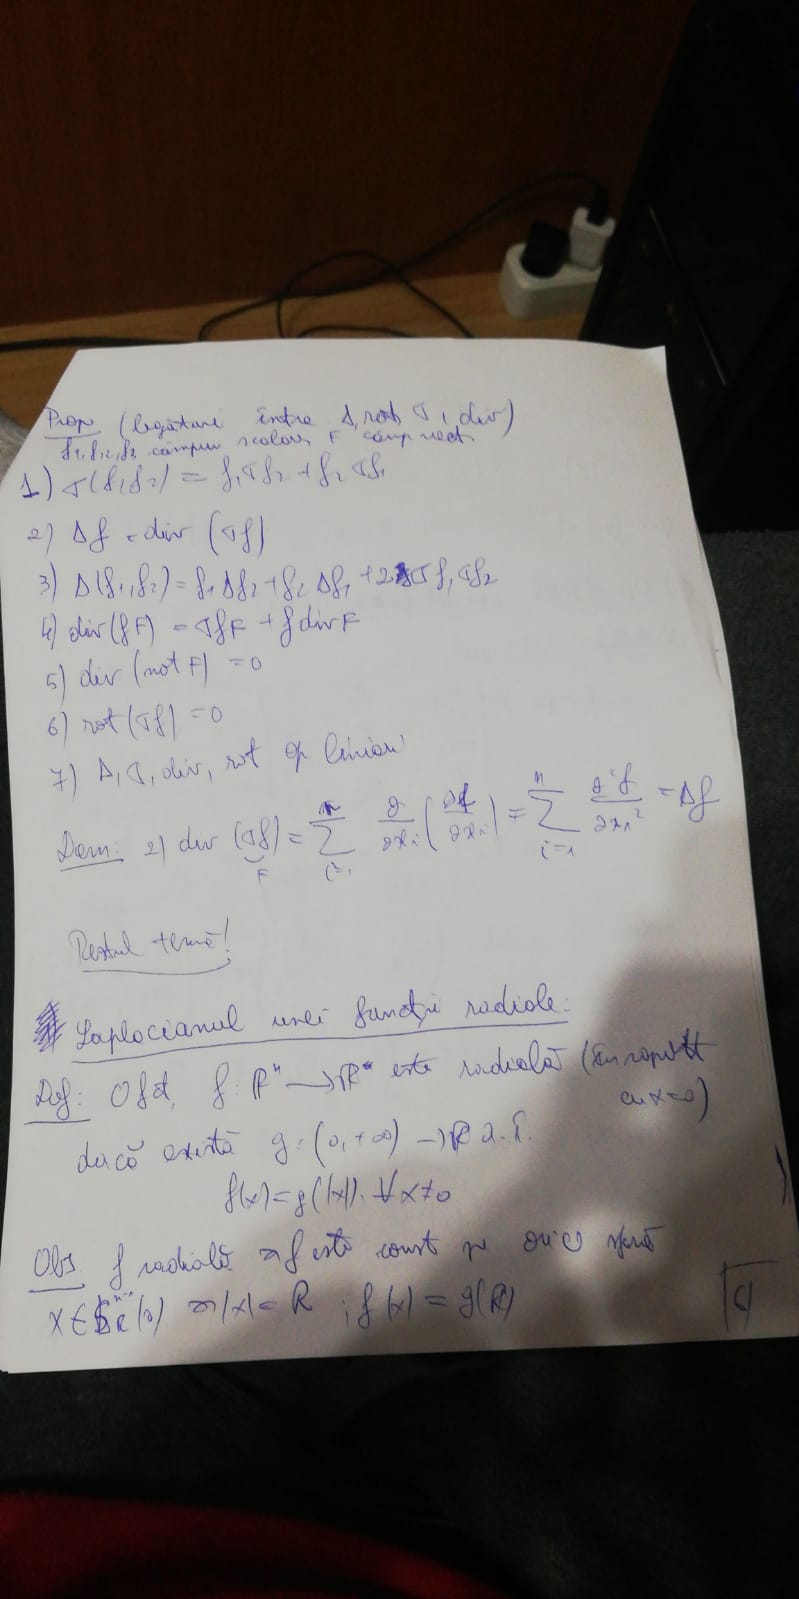 Prop (legături între Δ, rot, ∇, div)
f1, f2, f3 câmpuri scalare F câmp vect
1) ∇(f1f2) = f1∇f2 + f2∇f1
2) Δf = div (∇f)
3) Δ(f1,f2) = f1Δf2 + f2Δf1 + 2∇f1∇f2
4) div(fF) = ∇fF + f div F
5) div (rot F) = 0
6) rot (∇f) = 0
7) Δ, ∇, div, rot op liniari
Dem: 2) div (∇f) = ∑ ∂/∂xi (∂f/∂xi) = ∑ ∂²f/∂xi² = Δf
F i=1 n i=1
Restul temă!
Laplacianul unei funcții radiale:
Def: O fct, f: Rⁿ → R este radială (în raport
cu x=0)
dacă există g: (0,+∞) → R a.î.
f(x) = g(|x|). ∀x≠0
Obs f radială ⇒ f este const pe orice sferă
⇒ |x| = R ; f(x) = g(R)